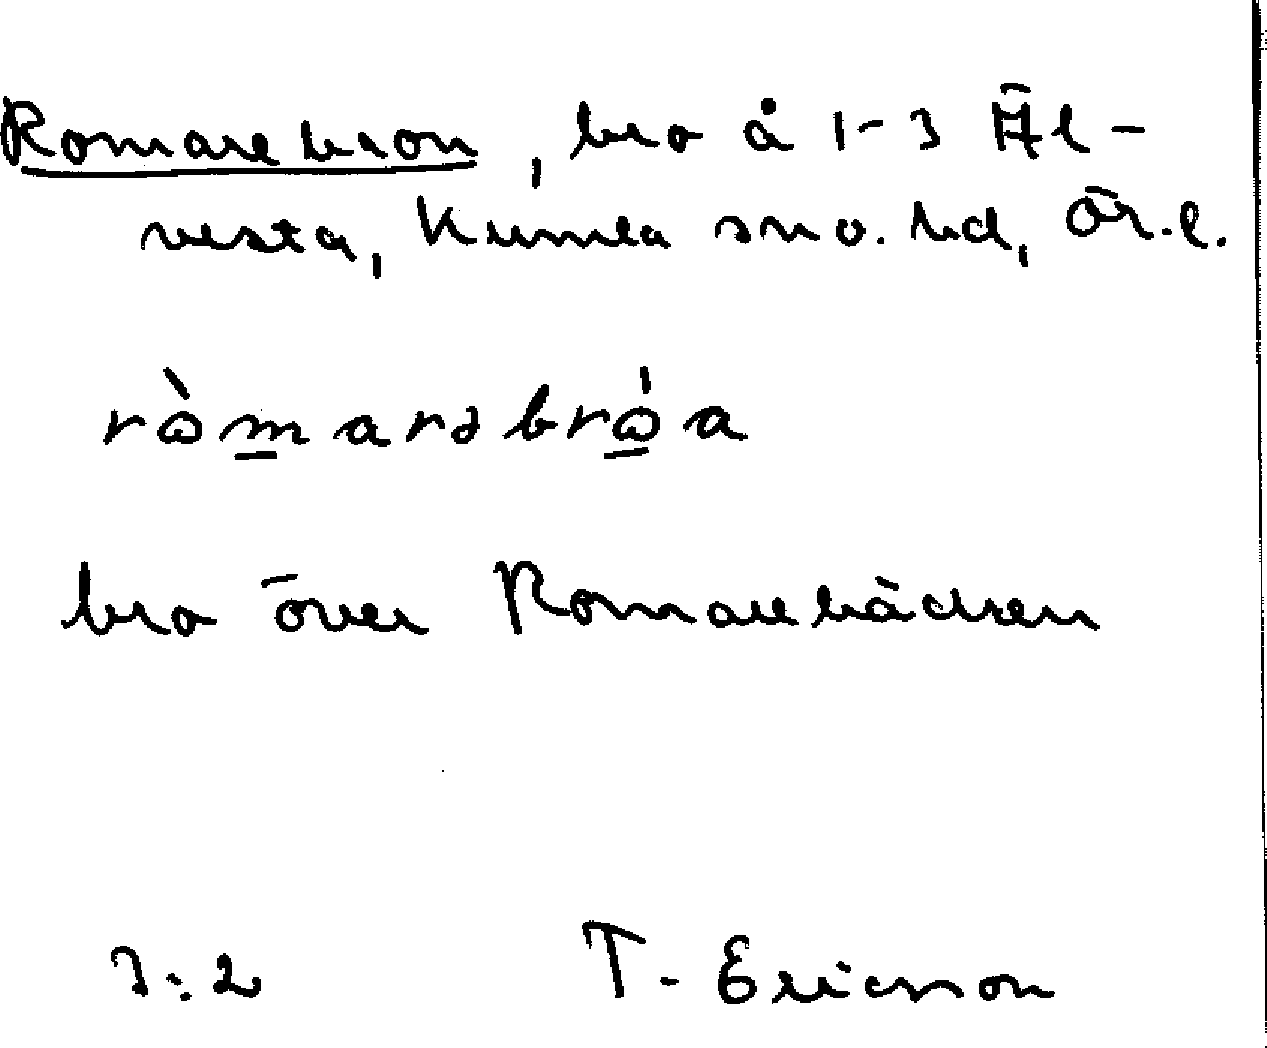 Romarebron, bro å 1-3 Äl-
vesta, Kumla sn o. hd, Ör. l.
ròmarəbróa
bro över Romarebäcken
3:2 T. Ericsson